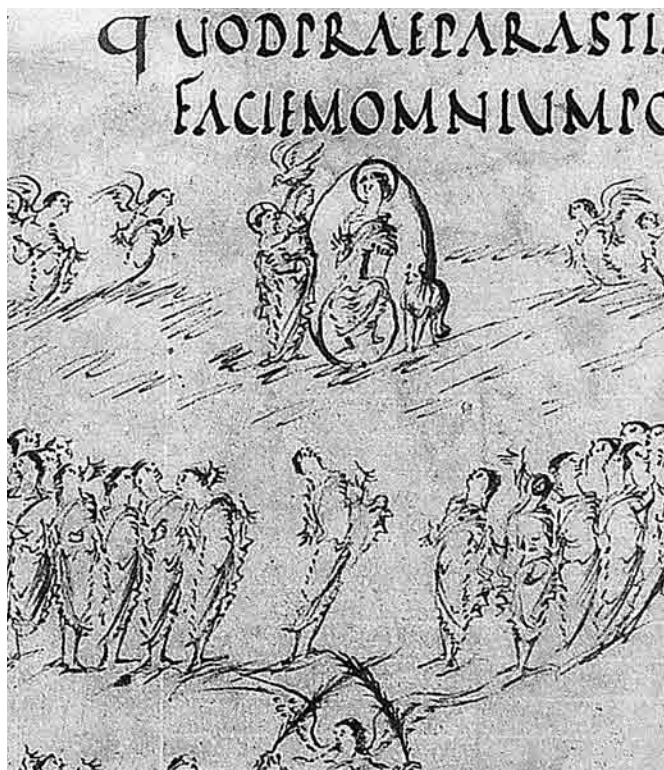 qUODPRAEPARASTI
FACIEMOMNIUMPO